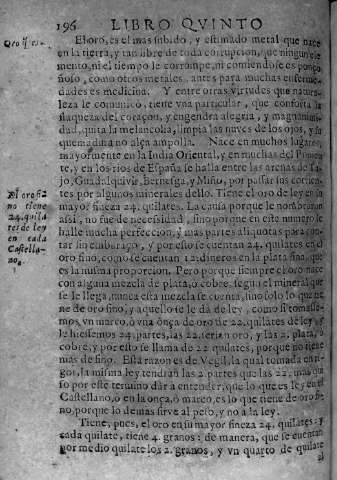 196 LIBRO QVINTO
El oro, es el mas subido, y estimado metal que nace
en la tierra, y tan libre de toda corrupcion, que ningun ele-
mento, ni el tiempo le corrompe, ni comiendose es ponço
ñoso, como otros metales, antes para muchas enferme-
dades es medicina. Y entre otras virtudes que natura-
leza le comunicò, tiene vna particular, que conforta la
flaqueza del coraçon, y engendra alegria, y magnanimi-
dad, quita la melancolia, limpia las nuves de los ojos, y su
quemadura no alça ampolla. Nace en muchos lugares,
mayormente en la India Oriental, y en muchas del Ponien
te, y en los rios de España se halla entre las arenas de Ta-
jo, Guadalquivir, Bernesga, y Miño, por passar sus corrien
tes por algunos minerales dello. Tiene el oro de ley en su
mayor fineza 24. quilates. La causa porque le nombraron
assi, no fue de necessidad, sino porque en este numero se
halla mucha perfeccion, y mas partes aliquotas para con-
tar sin embaraço, y por esto se cuentan 24. quilates en el
oro fino, como se cuentan 12. dineros en la plata fina, que
es la misma proporcion. Pero porque siempre el oro nace
con alguna mezcla de plata, o cobre, segun el mineral que
se le llega, nunca esta mezcla se cuenta, sino solo lo que tie
ne de oro fino, y aquello se le dà de ley, como si tomasse-
mos vn marco, ò vna onça de oro de 22. quilates de ley, y
le hiziessemos 24. partes, las 22. serian oro, y las 2. plata, ò
cobre, y por esto se llama de 22 quilates, porque no tiene
mas de fino. Esta razon es de Vegil, la qual tomada en ri-
gor, la misma ley tendràn las 2. partes que las 22, mas qui
so por este termino dàr à entender, que lo que es ley en el
Castellano, ò en la onça, ò marco, es lo que tiene de oro fi-
no, porque lo demas sirve al peso, y no a la ley.
Tiene, pues, el oro en su mayor fineza 24. quilates: y
cada quilate, tiene 4. granos: de manera, que se cuentan
por medio quilate los 2. granos, y vn quarto de quilate
El oro fi
no tiene
24. quila
tes de ley
en cada
Castella-
no.